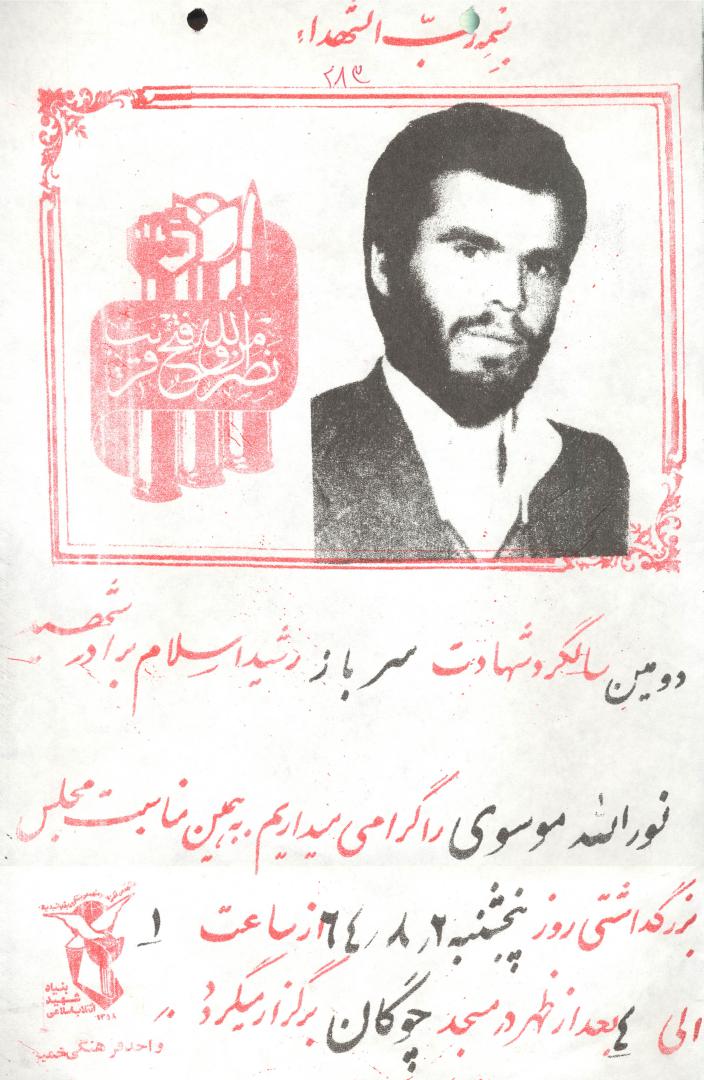 بسمه رب الشهداء
۲۸۳
نصر من الله و فتح قریب
دومین سالگرد شهادت سرباز رشید اسلام برادر شهید
نورالله موسوی را گرامی میداریم به همین مناسبت مجلس
بزرگداشتی روز پنجشنبه ۶٤٫۸٫۲ از ساعت ۱
الی ٤ بعد از ظهر در مسجد چوگان برگزار میگردد
بنیاد
شهید
انقلاب اسلامی
۱۳۵۸
واحد فرهنگی خمین